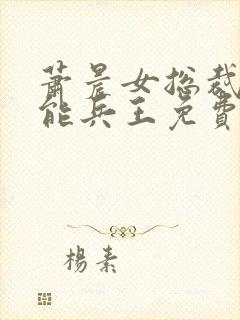 萧晨女总裁
能兵王免費
楊素